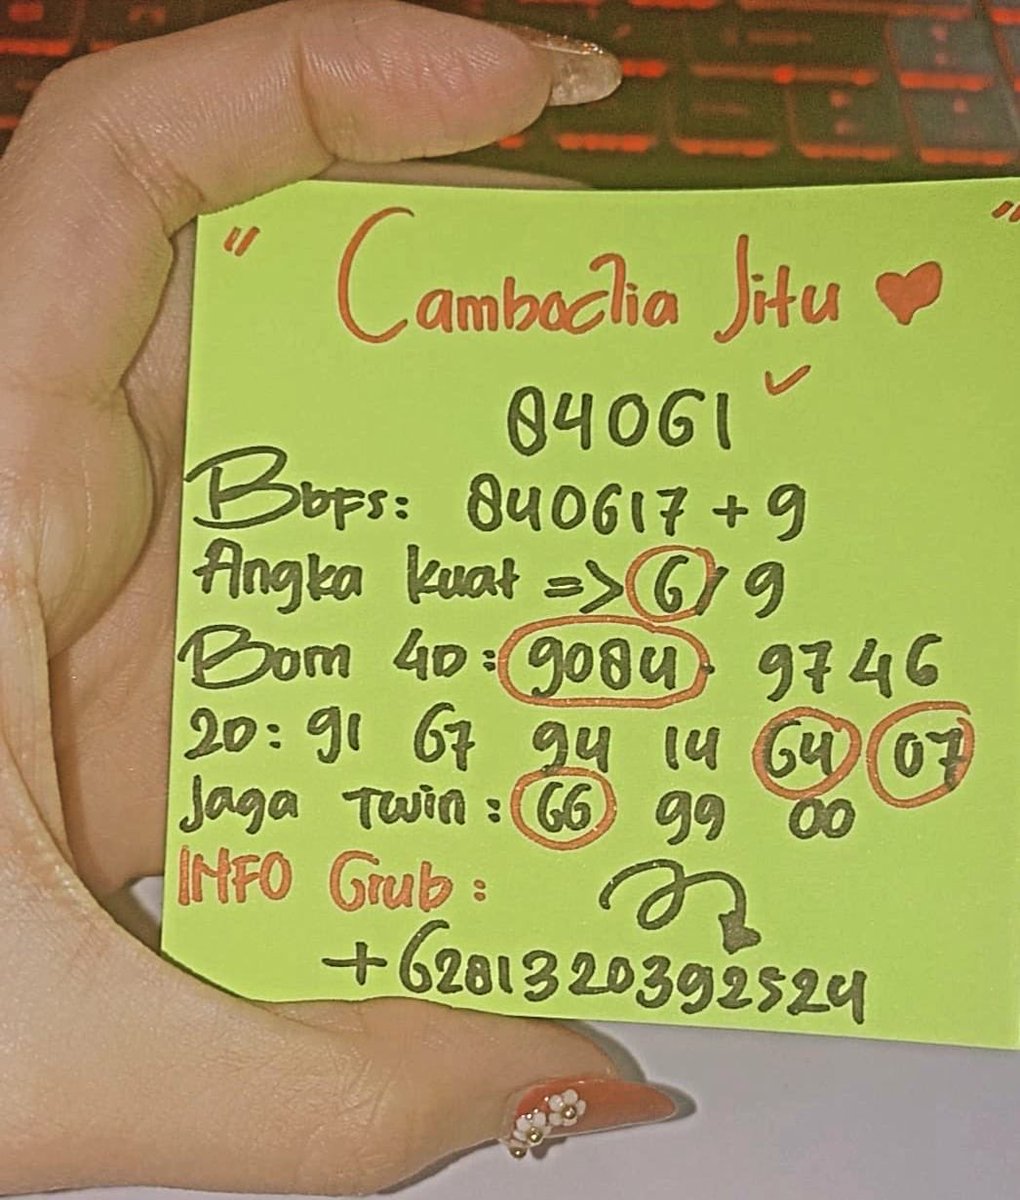 " Cambodia Jitu ❤ "
84061 ✓
BBFS: 840617 + 9
Angka kuat => 6/9
Bom 4D: 9084. 9746
2D: 91 67 94 14 64 07
Jaga Twin: 66 99 00
INFO Grub:
+6281320392524